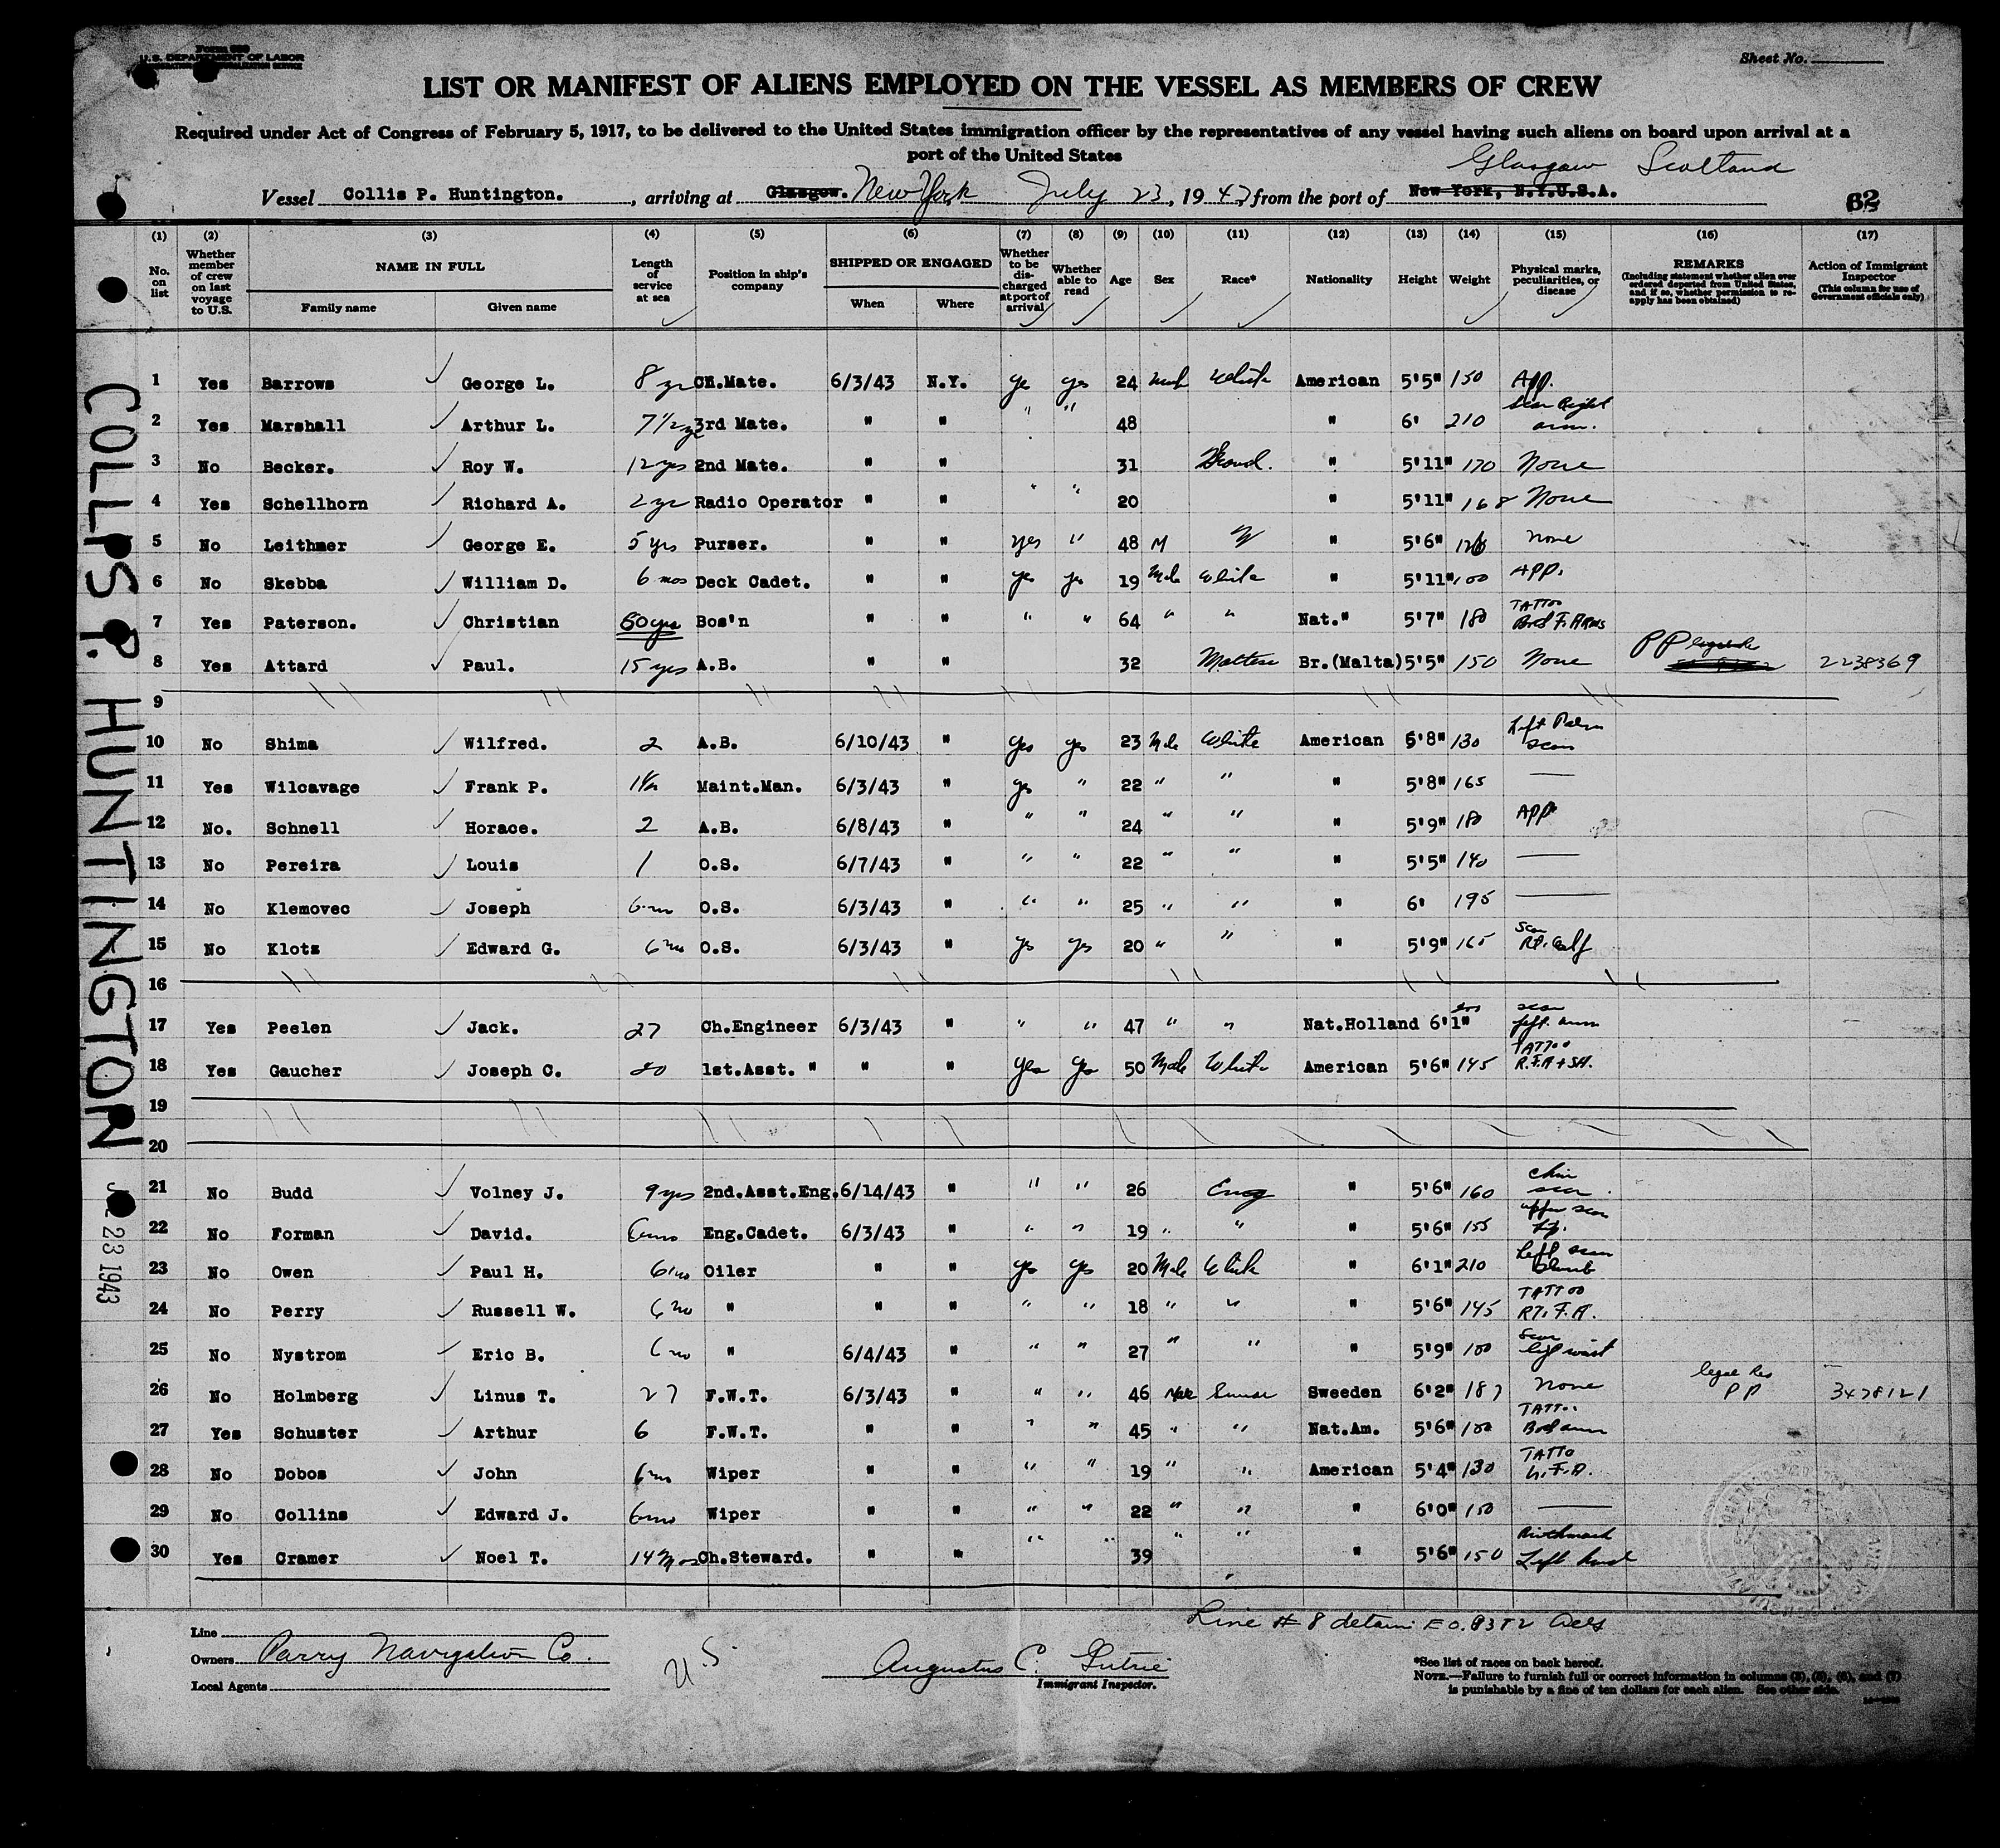 Form 680
U. S. DEPARTMENT OF LABOR
Sheet No.
LIST OR MANIFEST OF ALIENS EMPLOYED ON THE VESSEL AS MEMBERS OF CREW
Required under Act of Congress of February 5, 1917, to be delivered to the United States immigration officer by the representatives of any vessel having such aliens on board upon arrival at a
port of the United States
Glasgow Scotland
Vessel Collis P. Huntington. , arriving at Glasgow. New York July 23, 1943 from the port of New York, N.Y.U.S.A.
62
(1) (2) (3) (4) (5) (6) (7) (8) (9) (10) (11) (12) (13) (14) (15) (16) (17)
No. on list
Whether member of crew on last voyage to U.S.
NAME IN FULL
Family name Given name
Length of service at sea
Position in ship's company
SHIPPED OR ENGAGED
When Where
Whether to be discharged at port of arrival
Whether able to read
Age
Sex
Race*
Nationality
Height
Weight
Physical marks, peculiarities, or disease
REMARKS
(Including statement whether alien ever ordered deported from United States, and if so, whether permission to reapply has been obtained)
Action of Immigrant Inspector
(This column for use of Government officials only)
1 Yes Barrows George L. 8 yr Ch.Mate. 6/3/43 N.Y. ye yes 24 White American 5'5" 150 App.
2 Yes Marshall Arthur L. 7 1/2 yr 3rd Mate. " " " " 48 " 6' 210 Scar Right arm.
3 No Becker. Roy W. 12 yrs 2nd Mate. " " 31 " 5'11" 170 None
4 Yes Schellhorn Richard A. 2 yr Radio Operator " " " " 20 " 5'11" 168 None
5 No Leithmer George E. 5 yrs Purser. " " yes " 48 M W " 5'6" none
6 No Skebba William D. 6 mos Deck Cadet. " " ye ye 19 Male White " 5'11" App.
7 Yes Paterson. Christian 50 yrs Bos'n " " " " 64 " " Nat." 5'7" 180 TATTOO
8 Yes Attard Paul. 15 yrs A.B. " " 32 Maltese Br.(Malta) 5'5" 150 None PP 2238369
9
10 No Shima Wilfred. 2 A.B. 6/10/43 " yes yes 23 Male White American 5'8" 130 Left Palm scar
11 Yes Wilcavage Frank P. Maint.Man. 6/3/43 " ye " 22 " " " 5'8" 165 —
12 No. Schnell Horace. 2 A.B. 6/8/43 " " " 24 " " " 5'9" 180 App
13 No Pereira Louis 1 O.S. 6/7/43 " " " 22 " " " 5'5" 140 —
14 No Klemovec Joseph 6 m O.S. 6/3/43 " " " 25 " " " 6' 195 —
15 No Klots Edward G. 6 mo O.S. 6/3/43 " ye yes 20 " " " 5'9" 165 Scar Rt. Calf
16
17 Yes Peelen Jack. 27 Ch.Engineer 6/3/43 " " " 47 " " Nat.Holland 6'1" scar left. arm
18 Yes Gaucher Joseph C. 1st.Asst. " " " yes ye 50 Male White American 5'6" 145 TATTOO R.F.A + SH.
19
20
21 No Budd Volney J. 9 yrs 2nd.Asst.Eng. 6/14/43 " " " 26 Eng " 5'6" 160 chin scar
22 No Forman David. 6 mo Eng.Cadet. 6/3/43 " " " 19 " " " 5'6" 155 upper scar lip.
23 No Owen Paul H. 6 mo Oiler " " ye yes 20 Male White " 6'1" 210 Left scar thumb
24 No Perry Russell W. 6 mo " " " " " 18 " " " 5'6" 145 TATTOO RT. F.A.
25 No Nystrom Eric B. 6 mo " 6/4/43 " " " 27 " " " 5'9" Scar
26 No Holmberg Linus T. 27 F.W.T. 6/3/43 " " " 46 Male Sweden 6'2" 187 None legal Res PP 3478121
27 Yes Schuster Arthur 6 F.W.T. " " " " 45 " " Nat.Am. 5'6" TATTOO
28 No Dobos John 6 m Wiper " " " " 19 " " American 5'4" 130 TATTO L.F.A.
29 No Collins Edward J. 6 mo Wiper " " " " 22 " " " 6'0" 150 —
30 Yes Cramer Noel T. 14 Mos Ch.Steward. " " " " 39 " " " 5'6" 150 Birthmark Left hand
COLLIS P. HUNTINGTON
23 1943
Line # 8 detain
Line
Owners Parry Navigation Co.
Local Agents
U S
Augustus C.
Immigrant Inspector.
*See list of races on back hereof.
NOTE.—Failure to furnish full or correct information in columns (3), (5), (6), and (7)
is punishable by a fine of ten dollars for each alien. See other side.